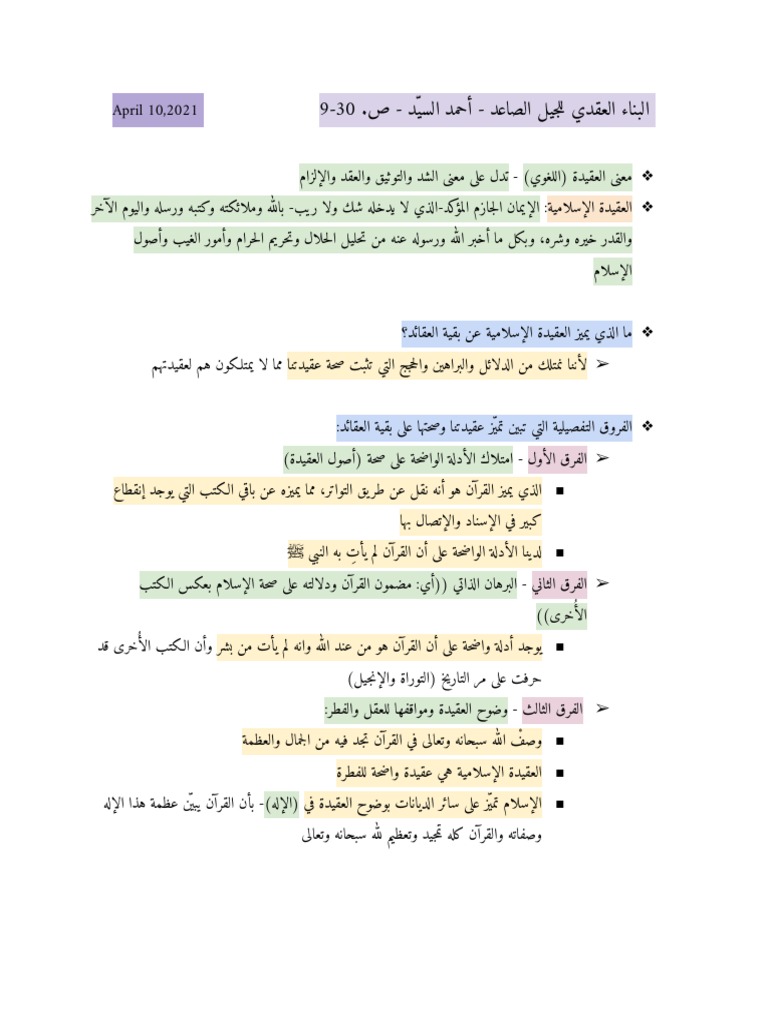 البناء العقدي للجيل الصاعد - أحمد السيّد - ص. 30-9 April 10,2021
❖ معنى العقيدة (اللغوي) - تدل على معنى الشد والتوثيق والعقد والإلزام
❖ العقيدة الإسلامية: الإيمان الجازم المؤكد-الذي لا يدخله شك ولا ريب- بالله وملائكته وكتبه ورسله واليوم الآخر
والقدر خيره وشره، وبكل ما أخبر الله ورسوله عنه من تحليل الحلال وتحريم الحرام وأمور الغيب وأصول
الإسلام
❖ ما الذي يميز العقيدة الإسلامية عن بقية العقائد؟
➢ لأننا نمتلك من الدلائل والبراهين والحجج التي تثبت صحة عقيدتنا مما لا يمتلكون هم لعقيدتهم
❖ الفروق التفصيلية التي تبين تميّز عقيدتنا وصحتها على بقية العقائد:
➢ الفرق الأول - امتلاك الأدلة الواضحة على صحة (أصول العقيدة)
■ الذي يميز القرآن هو أنه نقل عن طريق التواتر، مما يميزه عن باقي الكتب التي يوجد إنقطاع
كبير في الإسناد والإتصال بها
■ لدينا الأدلة الواضحة على أن القرآن لم يأتِ به النبي ﷺ
➢ الفرق الثاني - البرهان الذاتي ((أي: مضمون القرآن ودلالته على صحة الإسلام بعكس الكتب
الأُخرى))
■ يوجد أدلة واضحة على أن القرآن هو من عند الله وانه لم يأت من بشر وأن الكتب الأُخرى قد
حرفت على مر التاريخ (التوراة والإنجيل)
➢ الفرق الثالث - وضوح العقيدة ومواقفها للعقل والفطر:
■ وصفْ الله سبحانه وتعالى في القرآن تجد فيه من الجمال والعظمة
■ العقيدة الإسلامية هي عقيدة واضحة للفطرة
■ الإسلام تميّز على سائر الديانات بوضوح العقيدة في (الإله)- بأن القرآن يبيّن عظمة هذا الإله
وصفاته والقرآن كله تمجيد وتعظيم لله سبحانه وتعالى